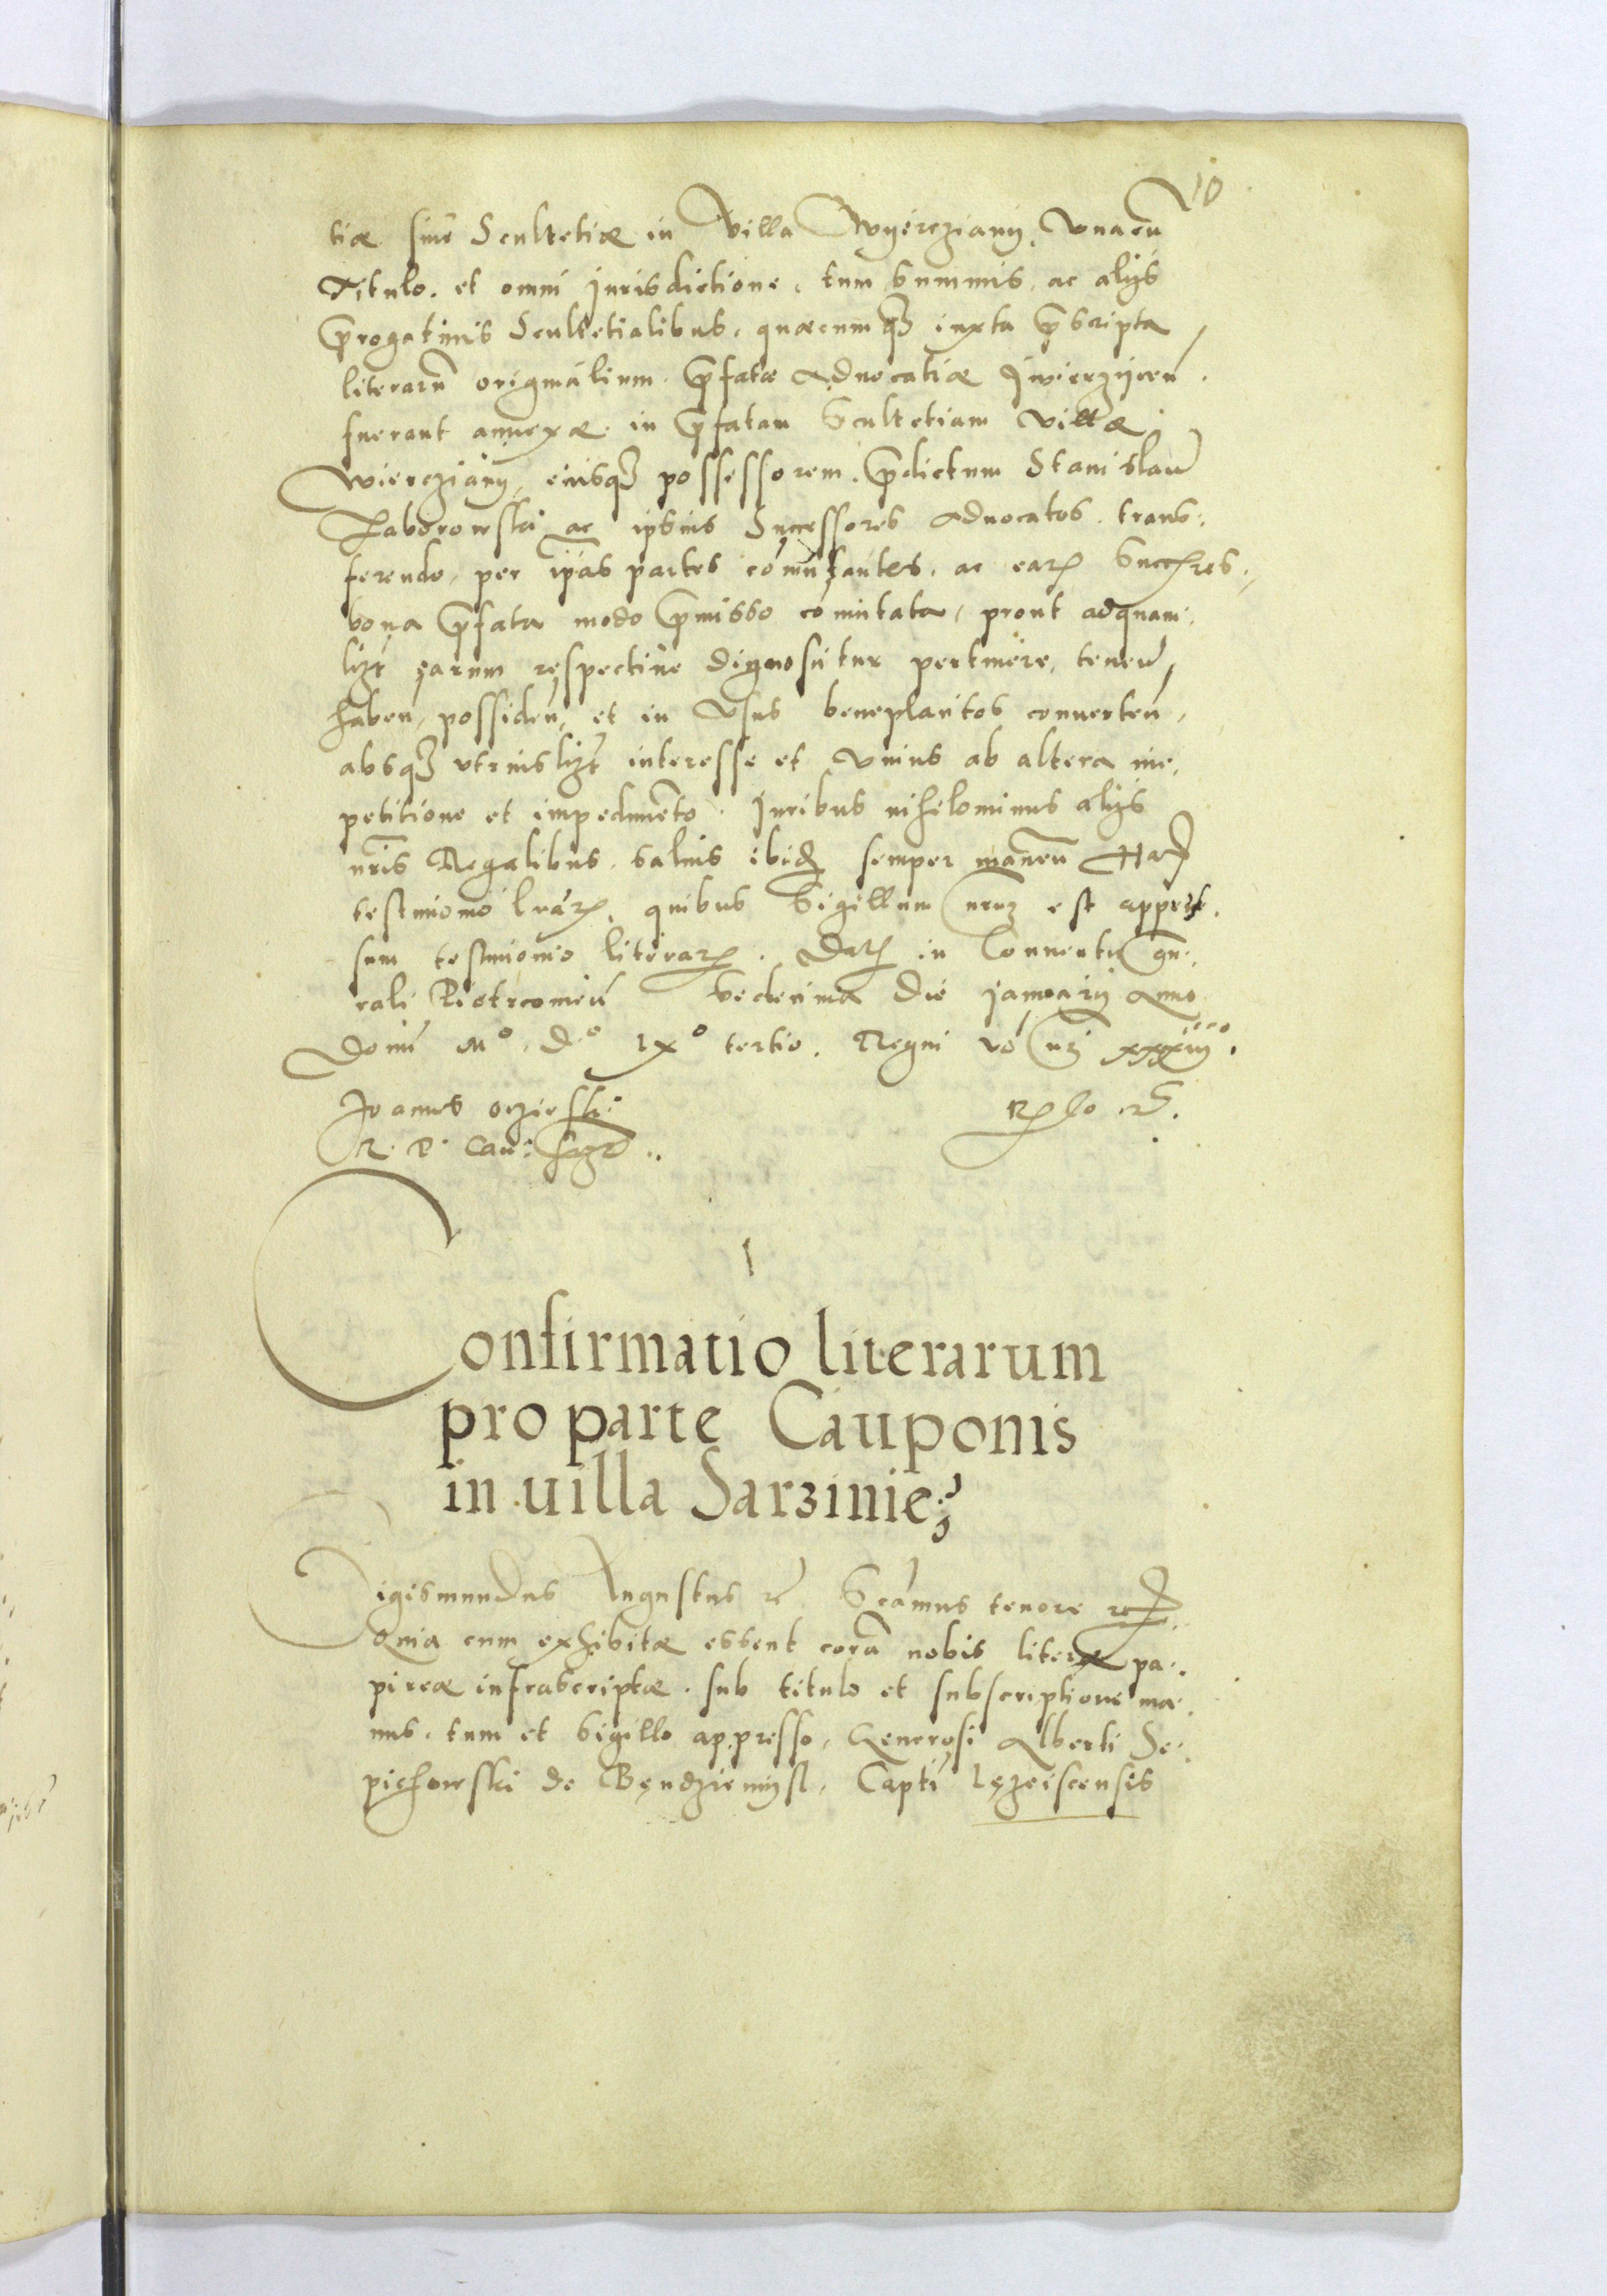 10
tiæ siue Scultetiæ in Villa Wyercziany, Vnacũ
Titulo. et omni Jurisdictione, tum summis, ac alijs
p̃rogatiuis Scultetialibus, quæcumq3 iuxta p̃scripta
literarũ originalium p̃fatæ Aduocatiæ
fuerant annexæ in p̃fatam Scultetiam Villæ
Wiercziany, eiusq3 possessorem p̃dictum Stanislaũ
Taborowski ac ipsius Successores Aduocatos trans-
ferendo, per ip̃as partes com̃utantes, ac earꝝ Succ̃res.
bona p̃fata modo p̃misso com̃utata, prout adquam
lib3 earum respectiue dignoscitur pertinere, teneñ,
habeñ, possideñ, et in Vsus beneplacitos conuerteñ,
absq3 vtriuslib3 interesse et Vnius ab altera
petitione et impedimẽto. Juribus nihilominus alijs
nr̃is Regalibus saluis ibidꝫ semper maneñ Harꝫ
testimonio l̃rarꝝ, quibus Sigillum nrm̃ est appres
sum testimonio literarꝝ. Datꝫ in Conuentu gñe
rali Piotrcouieñ Vndecima die Januarij Anno
Domi M° D° LX° tertio. Regni vo nr̃i xxxiii°.
Joannes oczieski
R. P. Can: ssp̃t
Rl̃o R̃.
Confirmatio literarum
pro parte Cauponis
in uilla Sarzinie;
Sigismundus Augustus rc̃ Scãmus tenore rc̃
Quia cum exhibitæ essent corã nobis literæ pa-
pireæ infrascriptæ. sub titulo et subscriptione ma-
nus. tum et sigillo appresso, Generosi Alberti Se-
piehowski de Bęndziemysl, Captĩ Lęzeiscensis